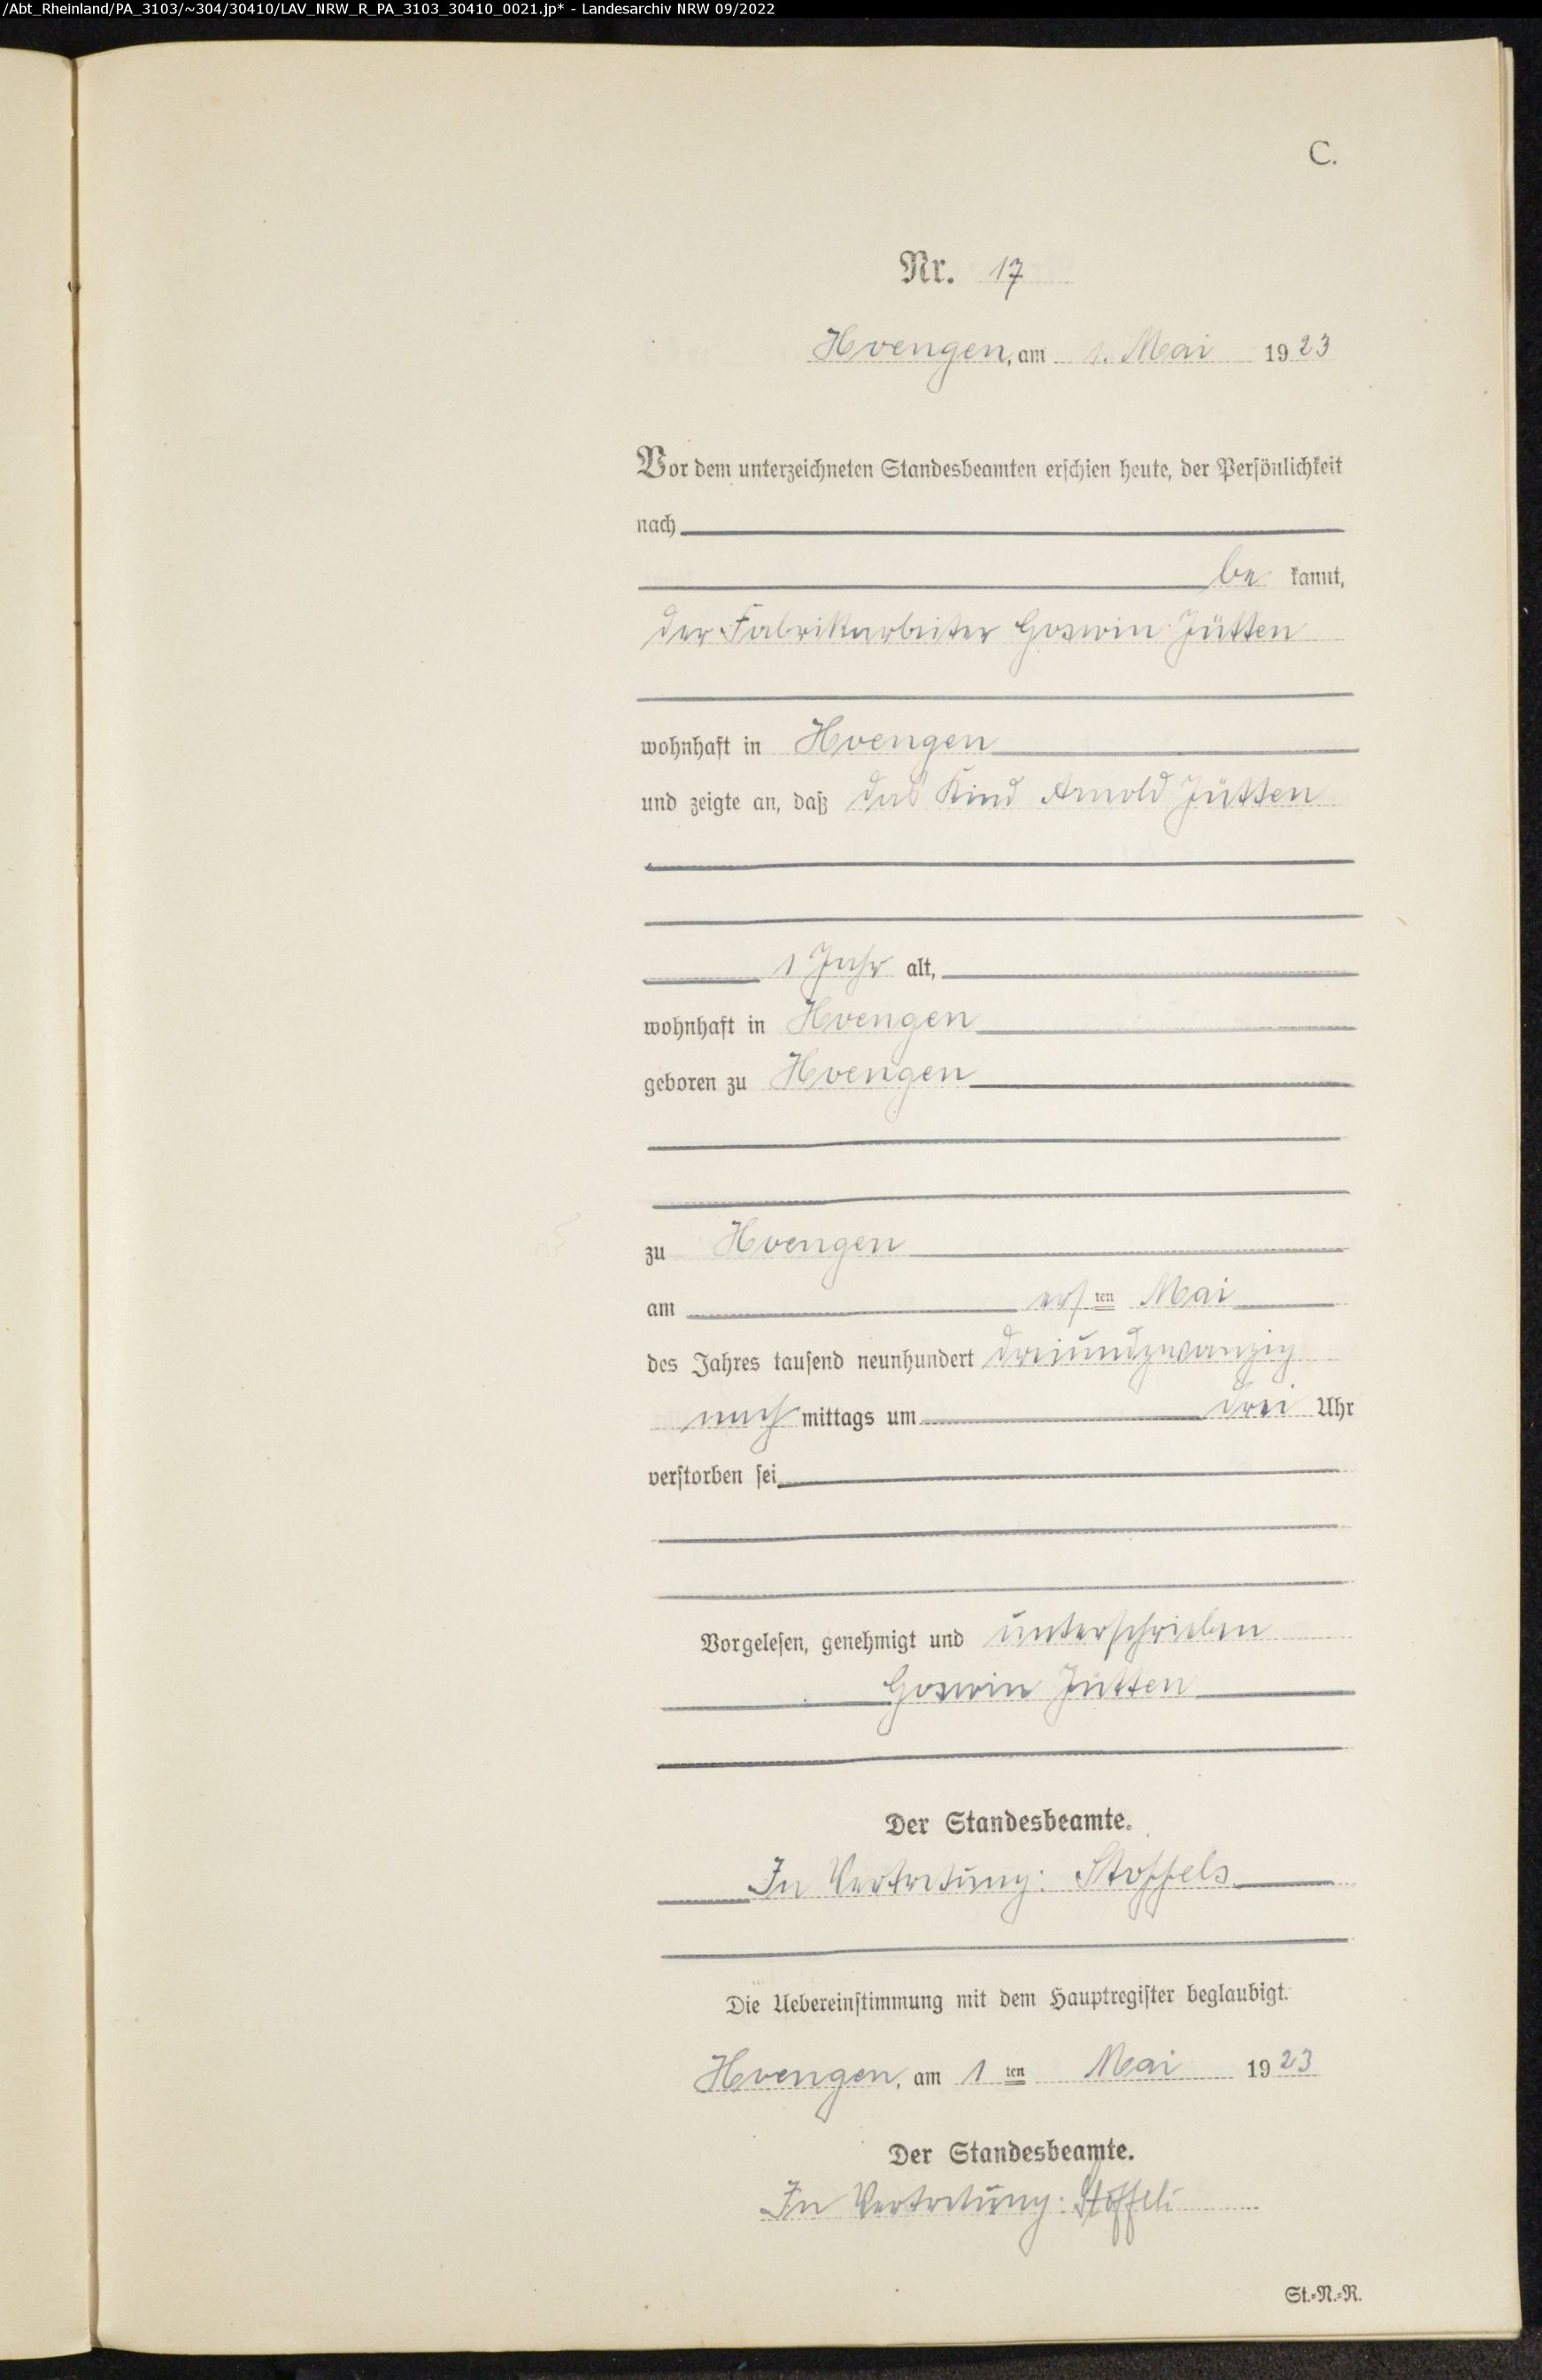 /Abt_Rheinland/PA_3103/~304/30410/LAV_NRW_R_PA_3103_30410_0021.jp* - Landesarchiv NRW 09/2022
C.
Nr. 17
Hoengen, am 1. Mai 1923
Vor dem unterzeichneten Standesbeamten erschien heute, der Persönlichkeit
nach
be kannt,
der Fabrikarbeiter Goswin Jütten
wohnhaft in Hoengen
und zeigte an, daß das Kind Arnold Jütten
1 Jahr alt,
wohnhaft in Hoengen
geboren zu Hoengen
zu Hoengen
am ersten Mai
des Jahres tausend neunhundert dreiundzwanzig
nach mittags um drei Uhr
verstorben sei
Vorgelesen, genehmigt und unterschrieben
Goswin Jütten
Der Standesbeamte.
In Vertretung: Stoffels
Die Uebereinstimmung mit dem Hauptregister beglaubigt.
Hoengen, am 1 ten Mai 1923
Der Standesbeamte.
In Vertretung: Stoffels
St.-N.-R.